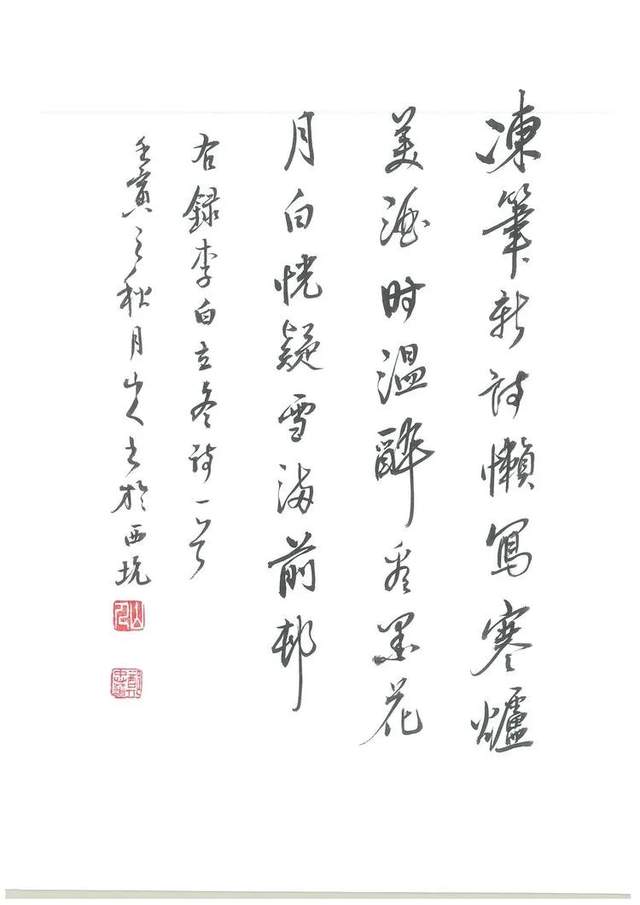 凍筆新詩懶寫寒爐
美酒时溫醉看墨花
月白恍疑雪滿前邨
右錄李白立冬詩一首
壬寅之秋月山人书於西坑